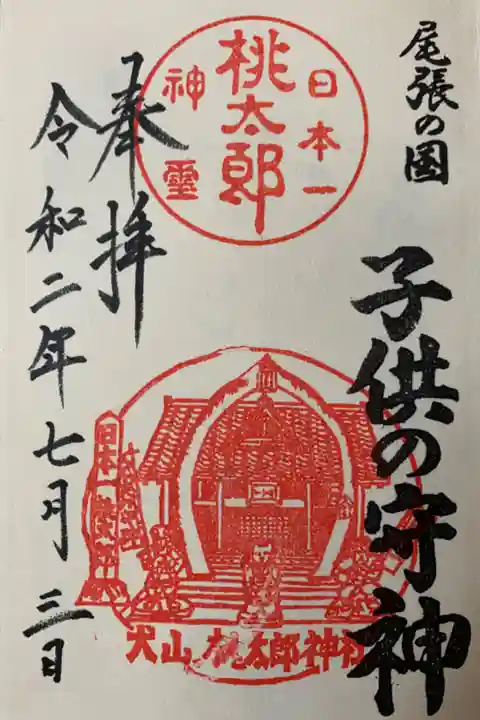 尾張の国
子供の守神
日本一
桃太郎
神霊
奉拝
令和二年七月三日
日本一
犬山桃太郎神社